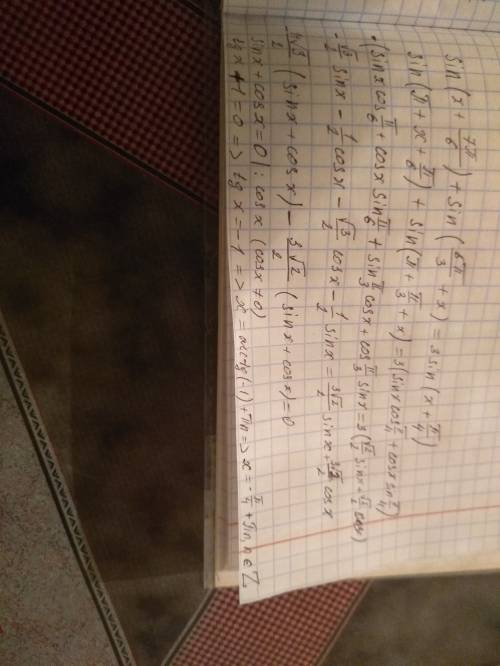 sin(x + 7π/6) + sin(6π/3 + x) = 3sin(x + π/4)
sin(π + x + π/6) + sin(π + π/3 + x) = 3(sinx cos π/4 + cosx sin π/4)
-(sinx cos π/6 + cosx sin π/6 + sin π/3 cosx + cos π/3 sinx = 3(√2/2 sinx + √2/2 cosx)
-√3/2 sinx - 1/2 cosx - √3/2 cosx - 1/2 sinx = 3√2/2 sinx + 3√2/2 cosx
(sinx + cosx) - 3√2/2 (sinx + cosx) = 0
sinx + cosx = 0 | : cosx (cosx ≠ 0)
tgx + 1 = 0 => tgx = -1 => x = arctg(-1) + πn => x = -π/4 + πn, n ∈ Z